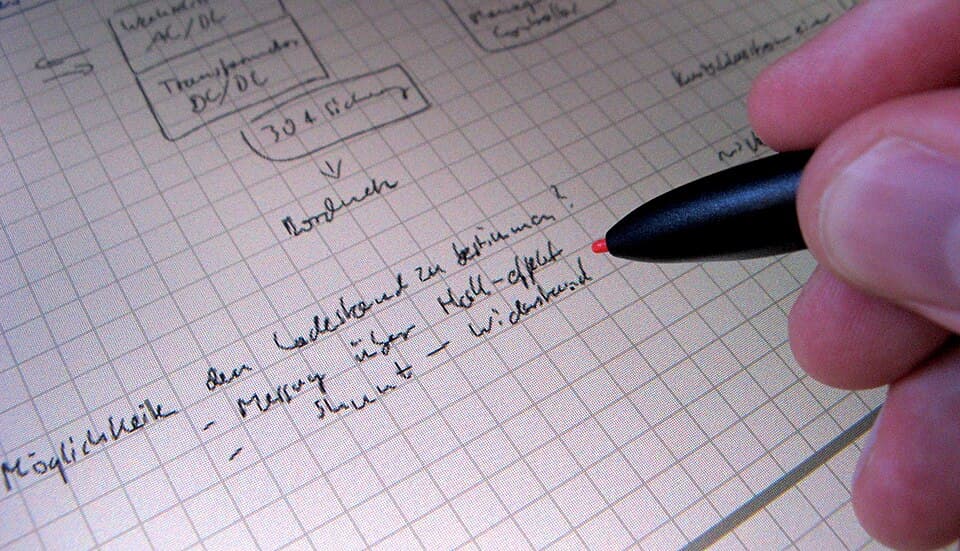 AC/DC
Transformator
DC/DC
30A Sicherung
Bordnetz
Manage
Controller
Möglichkeit den Ladestand zu bestimmen?
- Messung über Hall-effekt
- Shunt - Widerstand